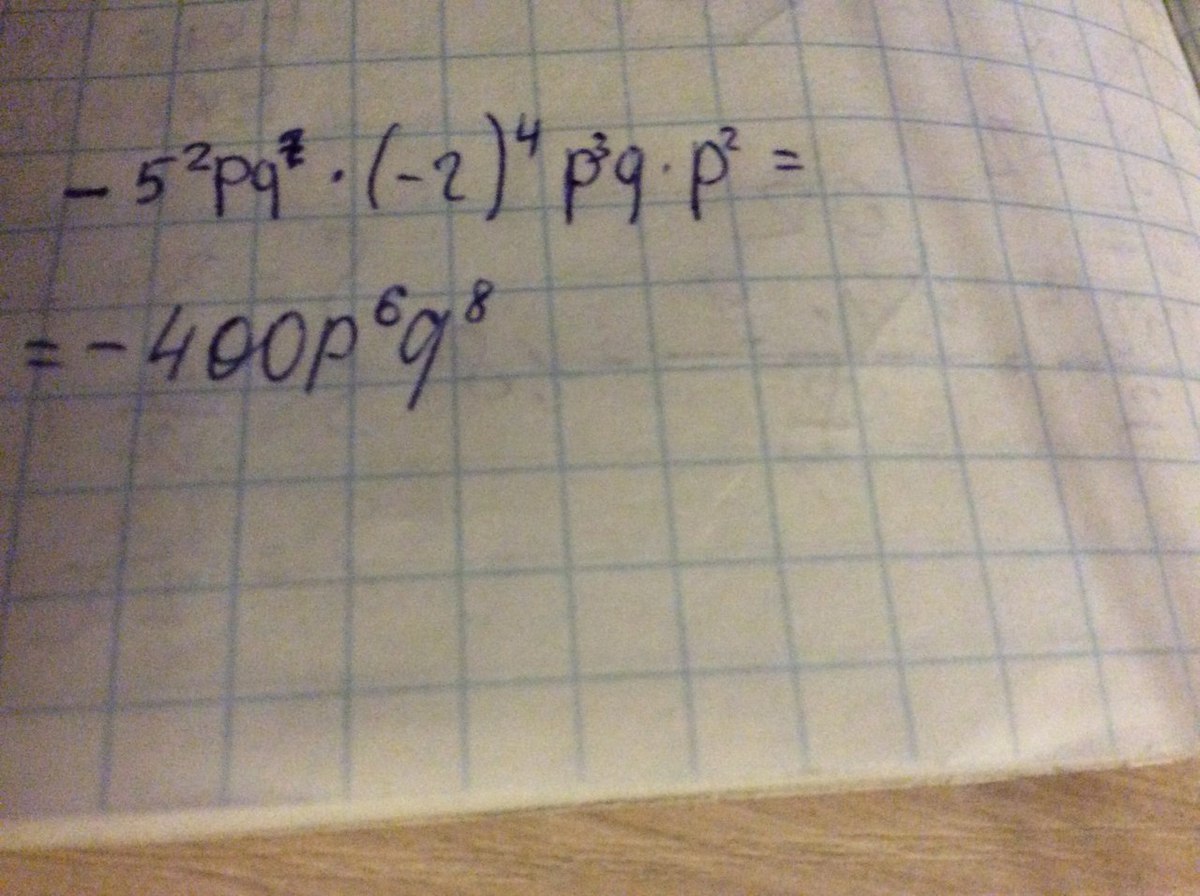 - 5²pq⁷ · (-2)⁴ p³q · p² =
= - 400p⁶q⁸